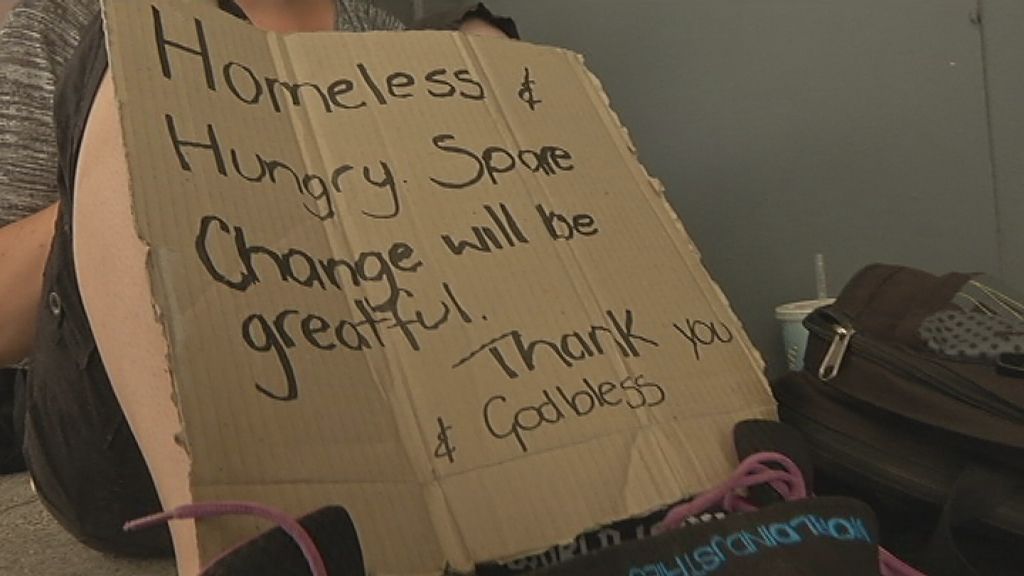 Homeless &
Hungry. Spare
Change will be
greatful.
Thank you
& Godbless